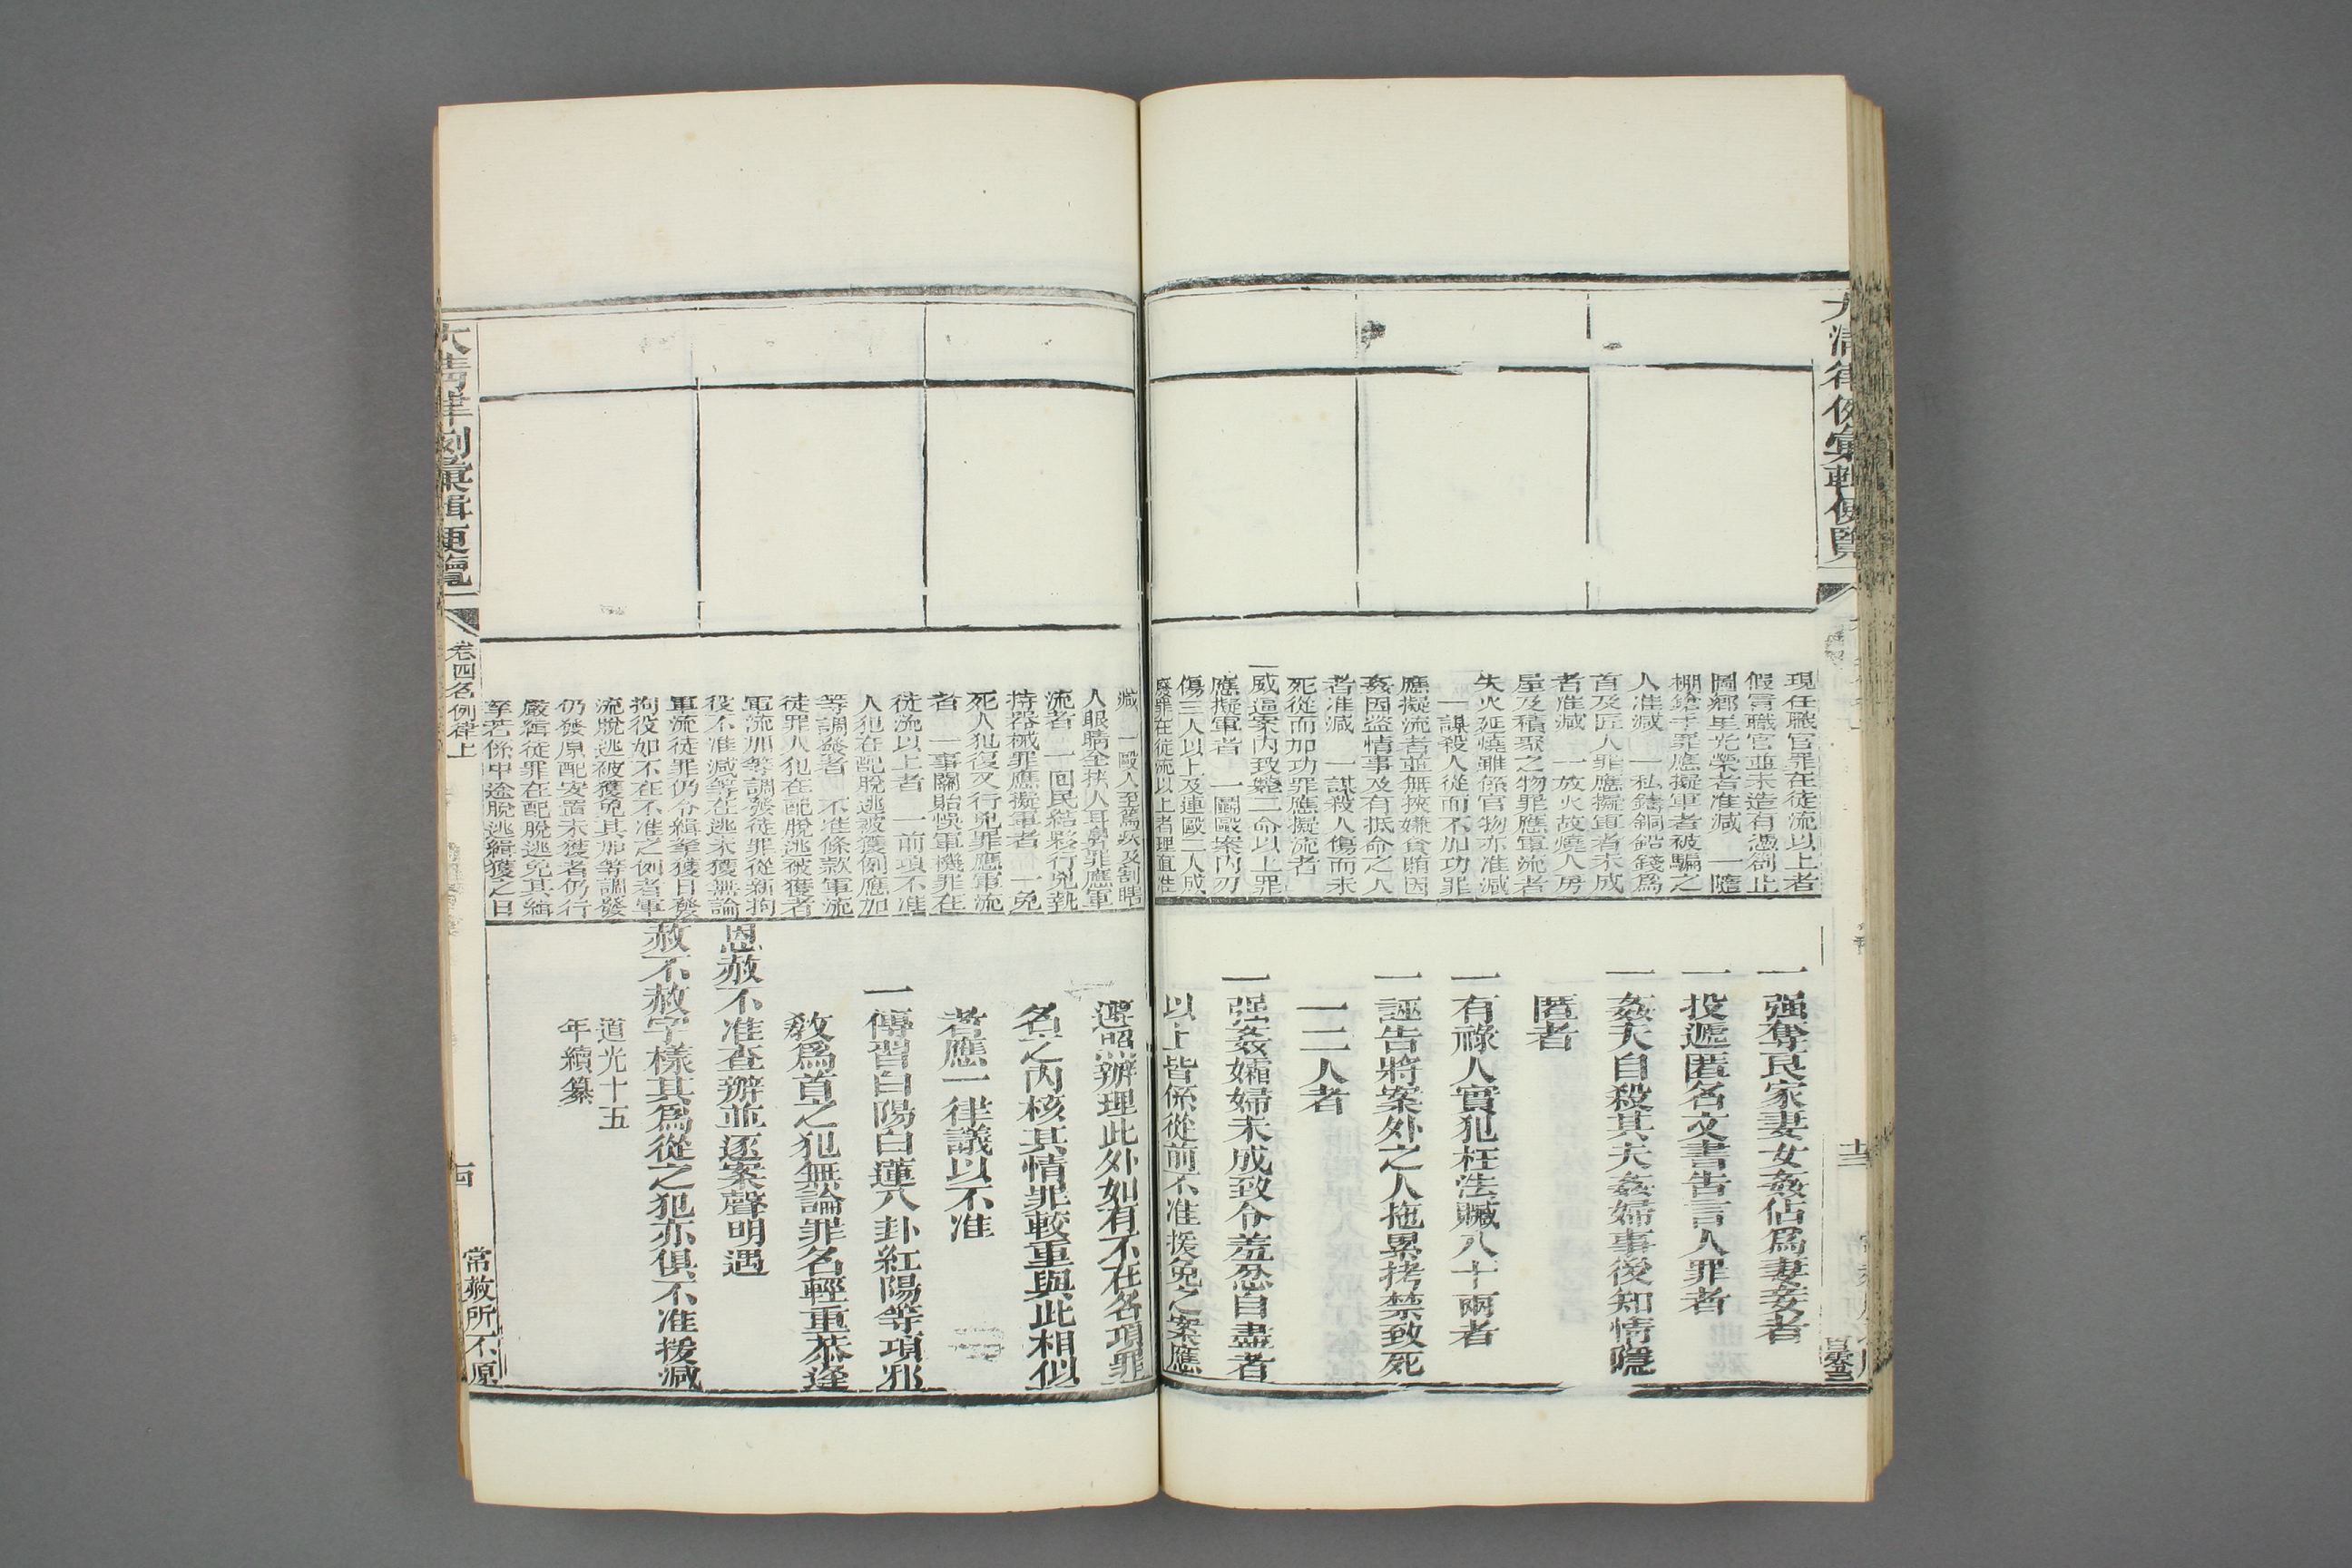 大清律例彙輯便覽
現在職官罪在徒流以上者
假冒職官並未造有憑劄止
圖鄉里光榮者准減　一隨
棚鎗手罪應擬軍者被騙之
人准減　一私鑄銅鉛錢爲
首及匠人罪應擬軍者未成
者准減　一放火故燒人房
屋及積聚之物罪應軍流者
失火延燒雖係官物亦准減
一謀殺人從而不加功罪
應擬流者並無挾嫌貪賄因
姦因盜情事及有抵命之人
者准減　一謀殺人傷而未
死從而加功罪應擬流者
一威逼案內致斃二命以上罪
應擬軍者　一鬭毆案內刃
傷三人以上及連毆二人成
廢罪在徒流以上者理直准
一強奪良家妻女姦佔爲妻妾者
一投遞匿名文書告言人罪者
一姦夫自殺其夫姦婦事後知情隱
匿者
一有祿人實犯枉法贓八十兩者
一誣告將案外之人拖累拷禁致死
一二人者
一强姦孀婦未成致令羞忿自盡者
以上皆係從前不准援免之案應
減　一毆人至篤疾及割瞎
人眼睛全抉人耳鼻罪應軍
流者　一回民結夥行兇執
持器械罪應擬軍者　一免
死人犯復又行兇罪應軍流
者　一事關貽悞軍機罪在
徒流以上者　一前項不准
人犯在配脫逃被獲例應加
等調發者　不准條款軍流
徒罪人犯在配脫逃被獲者
軍流加等調發徒罪從新拘
役不准減等在逃未獲無論
軍流徒罪仍令緝拏獲日發
拘役如不在不准之例者軍
流脫逃被獲免其加等調發
仍發原配安置未獲者仍行
嚴緝徒罪在配脫逃免其緝
拏若係中途脫逃緝獲之日
遵照辦理此外如有不在各項罪
名之內核其情罪較重與此相似
者應一律議以不准
一傳習白陽白蓮八卦紅陽等項邪
教爲首之犯無論罪名輕重恭逢
恩赦不准查辦並逐案聲明遇
赦不赦字樣其爲從之犯亦俱不准援減
道光十五
年續纂
大清律例彙輯便覽
卷四名例律上
常赦所不原